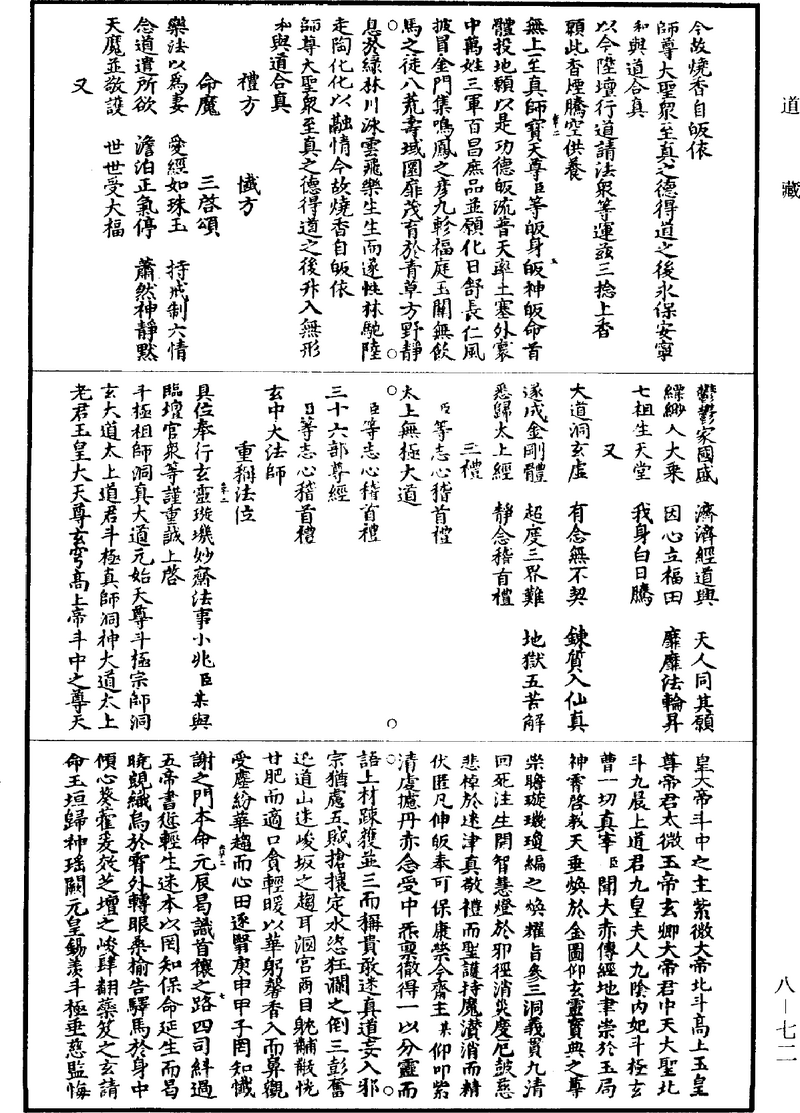 道藏
今故燒香自皈依
師尊大聖衆至真之德得道之後永保安寧
和與道合真
以今陞壇行道請法衆等運茲三捻上香
願此香煙騰空供養
無上至真師寶天尊臣等皈身皈神皈命首
體投地願以是功德皈流普天率土塞外寰
中萬姓三軍百昌庶品並願化日舒長仁風
披冒金門集鳴鳳之彥九軫福庭玉關無飲
馬之徒八荒壽域圜扉茂育於青草方野靜
息於綠林川泳雲飛樂生生而遂性林馳陸
走陶化化以融情今故燒香自皈依
師尊大聖衆至真之德得道之後昇入無形
和與道合真
禮方　懺方
命魔　三啓頌
樂法以爲妻　愛經如珠玉　持戒制六情
念道遣所欲　澹泊正氣停　蕭然神靜默
天魔並敬護　世世受大福
又
鬱鬱家國盛　濟濟經道興　天人同其願
縹緲入大乘　因心立福田　靡靡法輪昇
七祖生天堂　我身白日騰
又
大道洞玄虛　有念無不契　鍊質入仙真
遂成金剛體　超度三界難　地獄五苦解
悉歸太上經　靜念稽首禮
三禮
臣等志心稽首禮
太上無極大道
臣等志心稽首禮
三十六部尊經
臣等志心稽首禮
玄中大法師
重稱法位
具位奉行玄靈璇璣妙齋法事小兆臣某與
臨壇官衆等謹重誠上啓
斗極祖師洞真大道元始天尊斗極宗師洞
玄大道太上道君斗極真師洞神大道太上
老君玉皇大天尊玄穹高上帝斗中之尊天
皇大帝斗中之主紫微大帝北斗高上玉皇
尊帝君太微玉帝玄卿大帝君中天大聖北
斗九晨上道君九皇夫人九陰內妃斗極玄
曹一切真宰臣聞大赤傳經地聿崇於玉局
神霄啓教天垂煥於金圖仰玄靈寶典之尊
崇瞻璇璣瓊編之煥耀旨參三洞義貫九清
回死注生開智慧燈於邪徑消災度厄皷慈
悲棹於迷津真敬禮而聖護持魔潛消而精
伏匿凡伸皈奉可保康榮今齋主某仰叩紫
清虔攄丹亦念受中炁稟徹得一以分靈而
語上材踈獲並三而稱貴敢迷真道妄入邪
宗猶處五賊搶攘定水恣狂瀾之倒三彭奮
迅道山迷峻坂之趨耳溺宮商目眈黼黻恍
甘肥而適口貪輕暖以華躬馨香入而鼻觀
受塵紛華趨而心田逐腎庚申甲子罔知懺
謝之門本命元辰曷識首禳之路四司糾過
五帝書愆輕生迷本以罔知保命延生而曷
曉覬織烏於霄外轉眼桑榆告驛馬於身中
傾心葵藿爰效芝壇之峻肆翻蘂笈之玄請
命玉垣歸神瑤闕元皇錫羨斗極垂慈監悔
八－七二